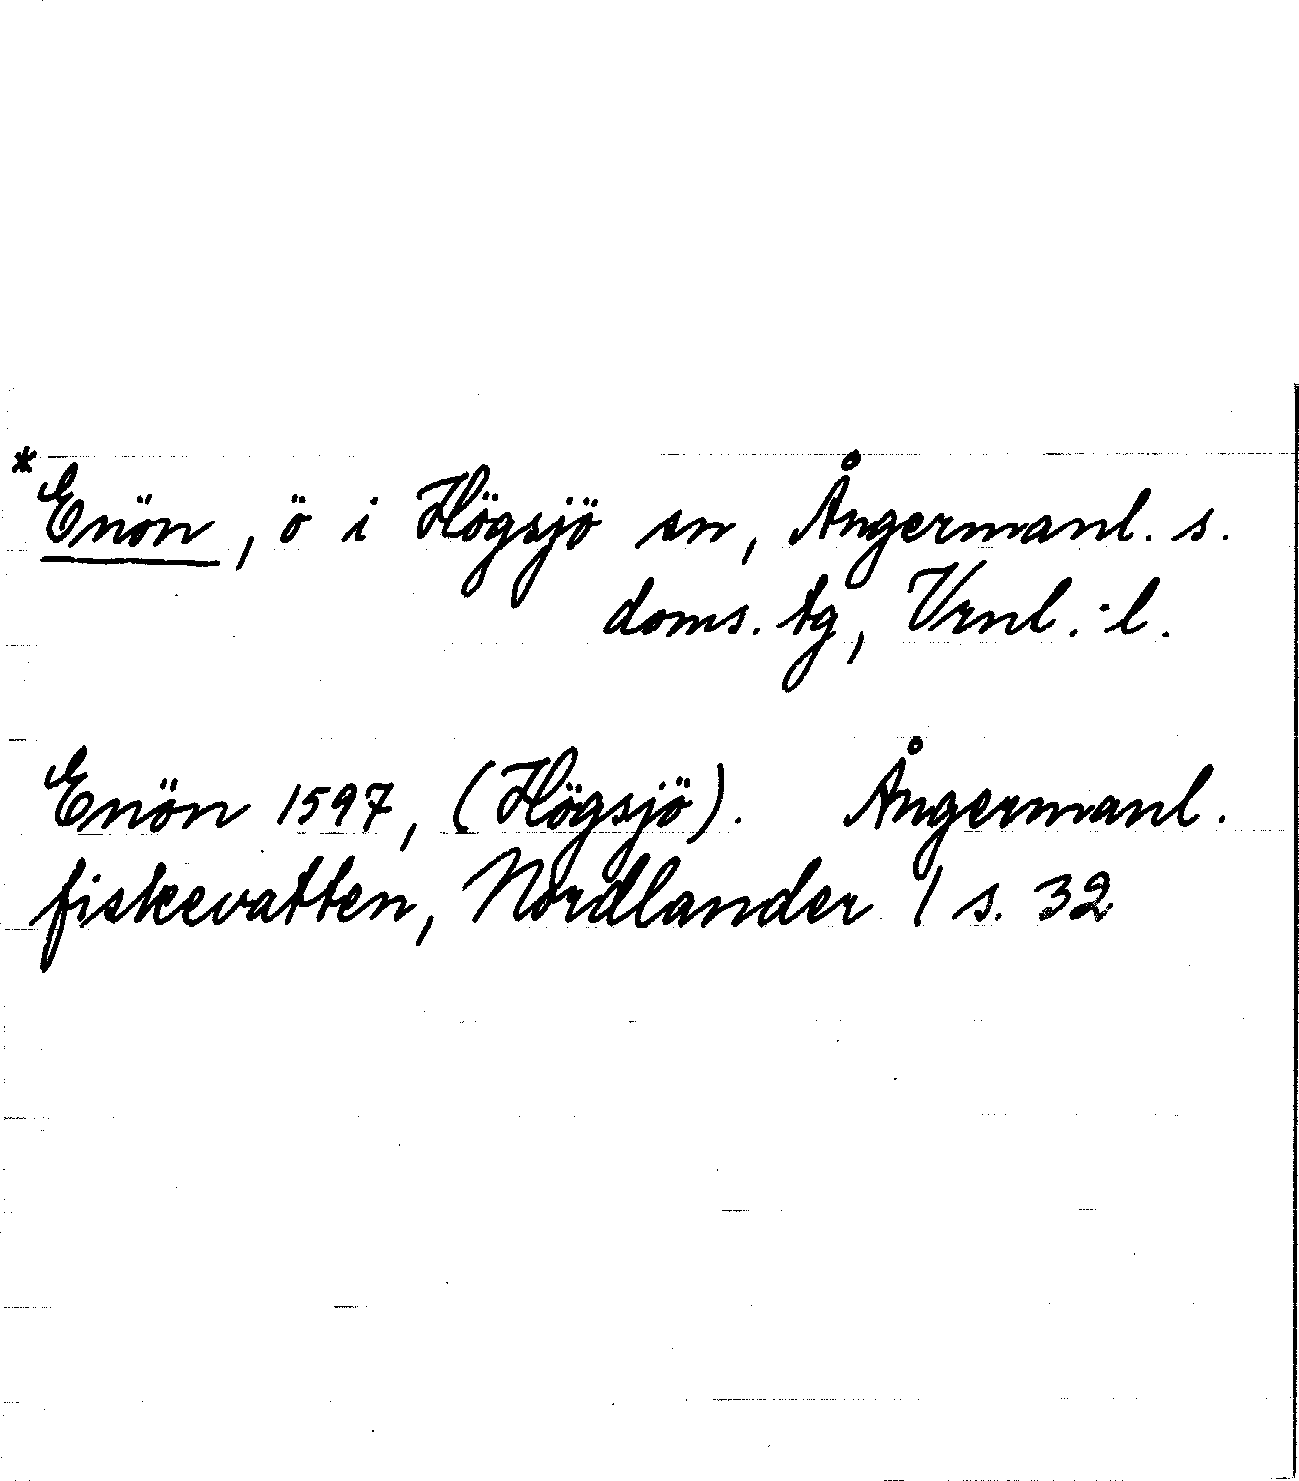 *Enön, ö i Högsjö sn, Ångermanl. s.
doms. tg, Vrnl.-l.
Enön 1597, (Högsjö). Ångermanl.
fiskevatten, Nordlander / s. 32